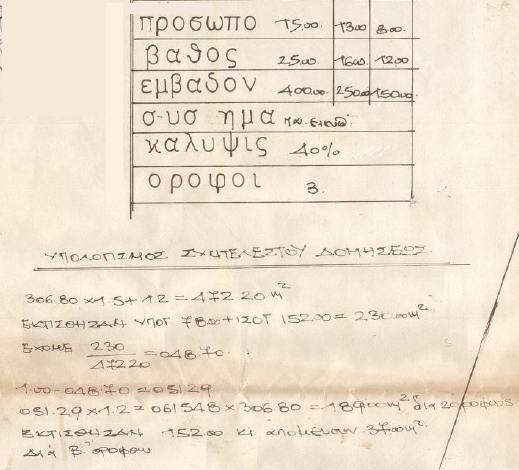 προσωπο 15.00 13.00 8.00
βαθος 25.00 16.00 12.00
εμβαδον 400.00 250.00 150.00
συσ ημα παν. ελευθ.
καλυψις 40%
οροφοι 3.
ΥΠΟΛΟΓΙΣΜΟΣ ΣΥΝΤΕΛΕΣΤΟΥ ΔΟΜΗΣΕΩΣ.
306.80 × 1.5 + 12 = 472 20 m²
ΕΚΤΙΣΘΗΣΑΝ ΥΠΟΓ 78.00 + ΙΣΟΓ 152.00 = 230.00 m²
ΕΧΟΜΕ 230 / 472 20 = 048.70.
1.00 - 048.70 = 051.29
051.29 × 1.2 = 061548 × 306.80 = 189.00 m² δια 2 οροφους
ΕΚΤΙΣΘΗΣΑΝ 152.00 κι απομεναν 37.00 m²
ΔΙΑ Β οροφον